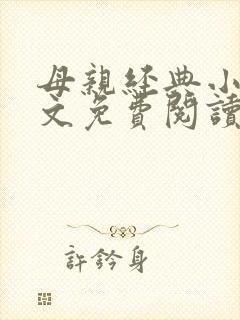 母親經典小
文免費閱讀
許鈐身